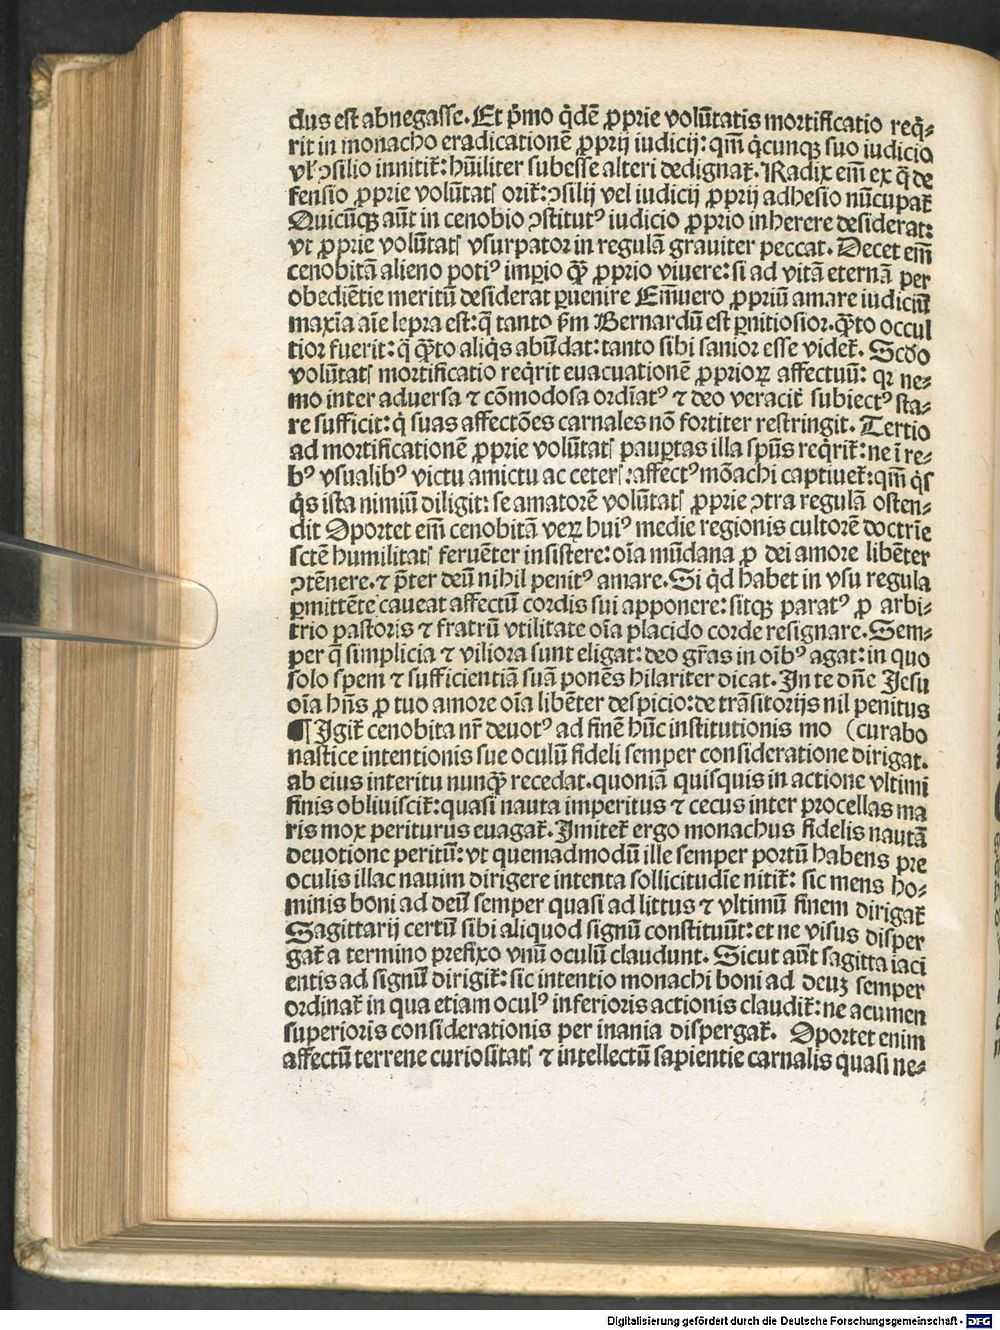 dus est abnegasse. Et p̄mo q̇dē ꝓprie volūtatis mortificatio req̇-
rit in monacho eradicationē ꝓprij iudicij: qm̄ q̇cunqꝫ suo iudicio
vl' ꝯsilio innitit̄: hūiliter subesse alteri dedignat̄. Radix em̄ ex q̄ de
fensio ꝓprie volūtatꝭ orit̄: ꝯsilij vel iudicij ꝓprij adhesio nūcupat̄
Quicūqꝫ aūt in cenobio ꝯstitutꝰ iudicio ꝓprio inherere desiderat:
vt ꝓprie volūtatꝭ vsurpator in regulā grauiter peccat. Decet em̄
cenobitā alieno potiꝰ imꝑio qꝫ̄ ꝓprio viuere: si ad vitā eternā per
obediētie meritū desiderat ꝑuenire Em̄uero ꝓpriū amare iudiciū
maxīa aīe lepra est: q̄ tanto s̄m Bernardū est ꝑnitiosior. qꝫ̄to occul
tior fuerit: q̄ qꝫ̄to aliq̇s abūdat: tanto sibi sanior esse videt̄. Scd̄o
volūtatꝭ mortificatio req̇rit euacuationē ꝓpriorꝝ affectuū: qꝛ ne-
mo inter aduersa ⁊ cōmodosa ordīatꝰ ⁊ deo veracit̄ subiectꝰ sta-
re sufficit: q̇ suas affectōes carnales nō fortiter restringit. Tertio
ad mortificationē ꝓprie volūtatꝭ pauꝑtas illa spūs req̇rit̄: ne ī re-
bꝰ vsualibꝰ victu amictu ac ceterꝭ: affectꝰ mōachi captiuet̄: qm̄ q̇s
q̇s ista nimiū diligit: se amatorē volūtatꝭ ꝓprie ꝯtra regulā osten-
dit Oportet em̄ cenobitā verꝝ huiꝰ medie regionis cultorē doctrīe
sctē humilitatꝭ feruēter insistere: oīa mūdana ꝓ dei amore libēter
ꝯtēnere. ⁊ p̄ter deū nihil penitꝰ amare. Si q̇d habet in vsu regula
ꝑmittēte caueat affectū cordis sui apponere: sitqꝫ paratꝰ ꝓ arbi-
trio pastoris ⁊ fratrū vtilitate oīa placido corde resignare. Sem-
per q̄ simplicia ⁊ viliora sunt eligat: deo gr̄as in oībꝰ agat: in quo
solo spem ⁊ sufficientiā suā ponēs hilariter dicat. In te dn̄e Jesu
oīa hn̄s ꝓ tuo amore oīa libēter despicio: de trāsitorijs nil penitus
¶ Igit̄ cenobita nr̄ deuotꝰ ad finē hūc institutionis mo (curabo
nastice intentionis sue oculū fideli semper consideratione dirigat.
ab eius interitu nunqꝫ̄ recedat. quoniā quisquis in actione vltimi
finis obliuiscit̄: quasi nauta imperitus ⁊ cecus inter procellas ma
ris mox periturus euagat̄. Imitet̄ ergo monachus fidelis nautā
deuotione peritū: vt quemadmodū ille semper portū habens pre
oculis illac nauim dirigere intenta sollicitudīe nitit̄: sic mens ho-
minis boni ad deū semper quasi ad littus ⁊ vltimū finem dirigat̄
Sagittarij certū sibi aliquod signū constituūt: et ne visus disper
gat̄ a termino prefixo vnū oculū claudunt. Sicut aūt sagitta iaci
entis ad signū dirigit̄: sic intentio monachi boni ad deuꝫ semper
ordinat̄ in qua etiam oculꝰ inferioris actionis claudit̄: ne acumen
superioris considerationis per inania dispergat̄. Oportet enim
affectū terrene curiositatꝭ ⁊ intellectū sapientie carnalis quasi ne-
Digitalisierung gefördert durch die Deutsche Forschungsgemeinschaft - DFG